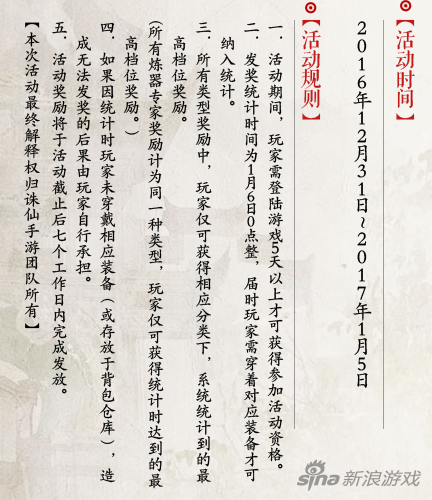 【活动时间】
2016年12月31日~2017年1月5日
【活动规则】
一、活动期间，玩家需登陆游戏5天以上才可获得参加活动资格。
二、发奖统计时间为1月6日0点整，届时玩家需穿着对应装备才可
纳入统计。
三、所有类型奖励中，玩家仅可获得相应分类下，系统统计到的最
高档位奖励。
（所有炼器专家奖励计为同一种类型，玩家仅可获得统计时达到的最
高档位奖励。）
四、如果因统计时玩家未穿戴相应装备（或存放于背包仓库），造
成无法发奖的后果由玩家自行承担。
五、活动奖励将于活动截止后七个工作日内完成发放。
【本次活动最终解释权归诛仙手游团队所有】
sina 新浪游戏